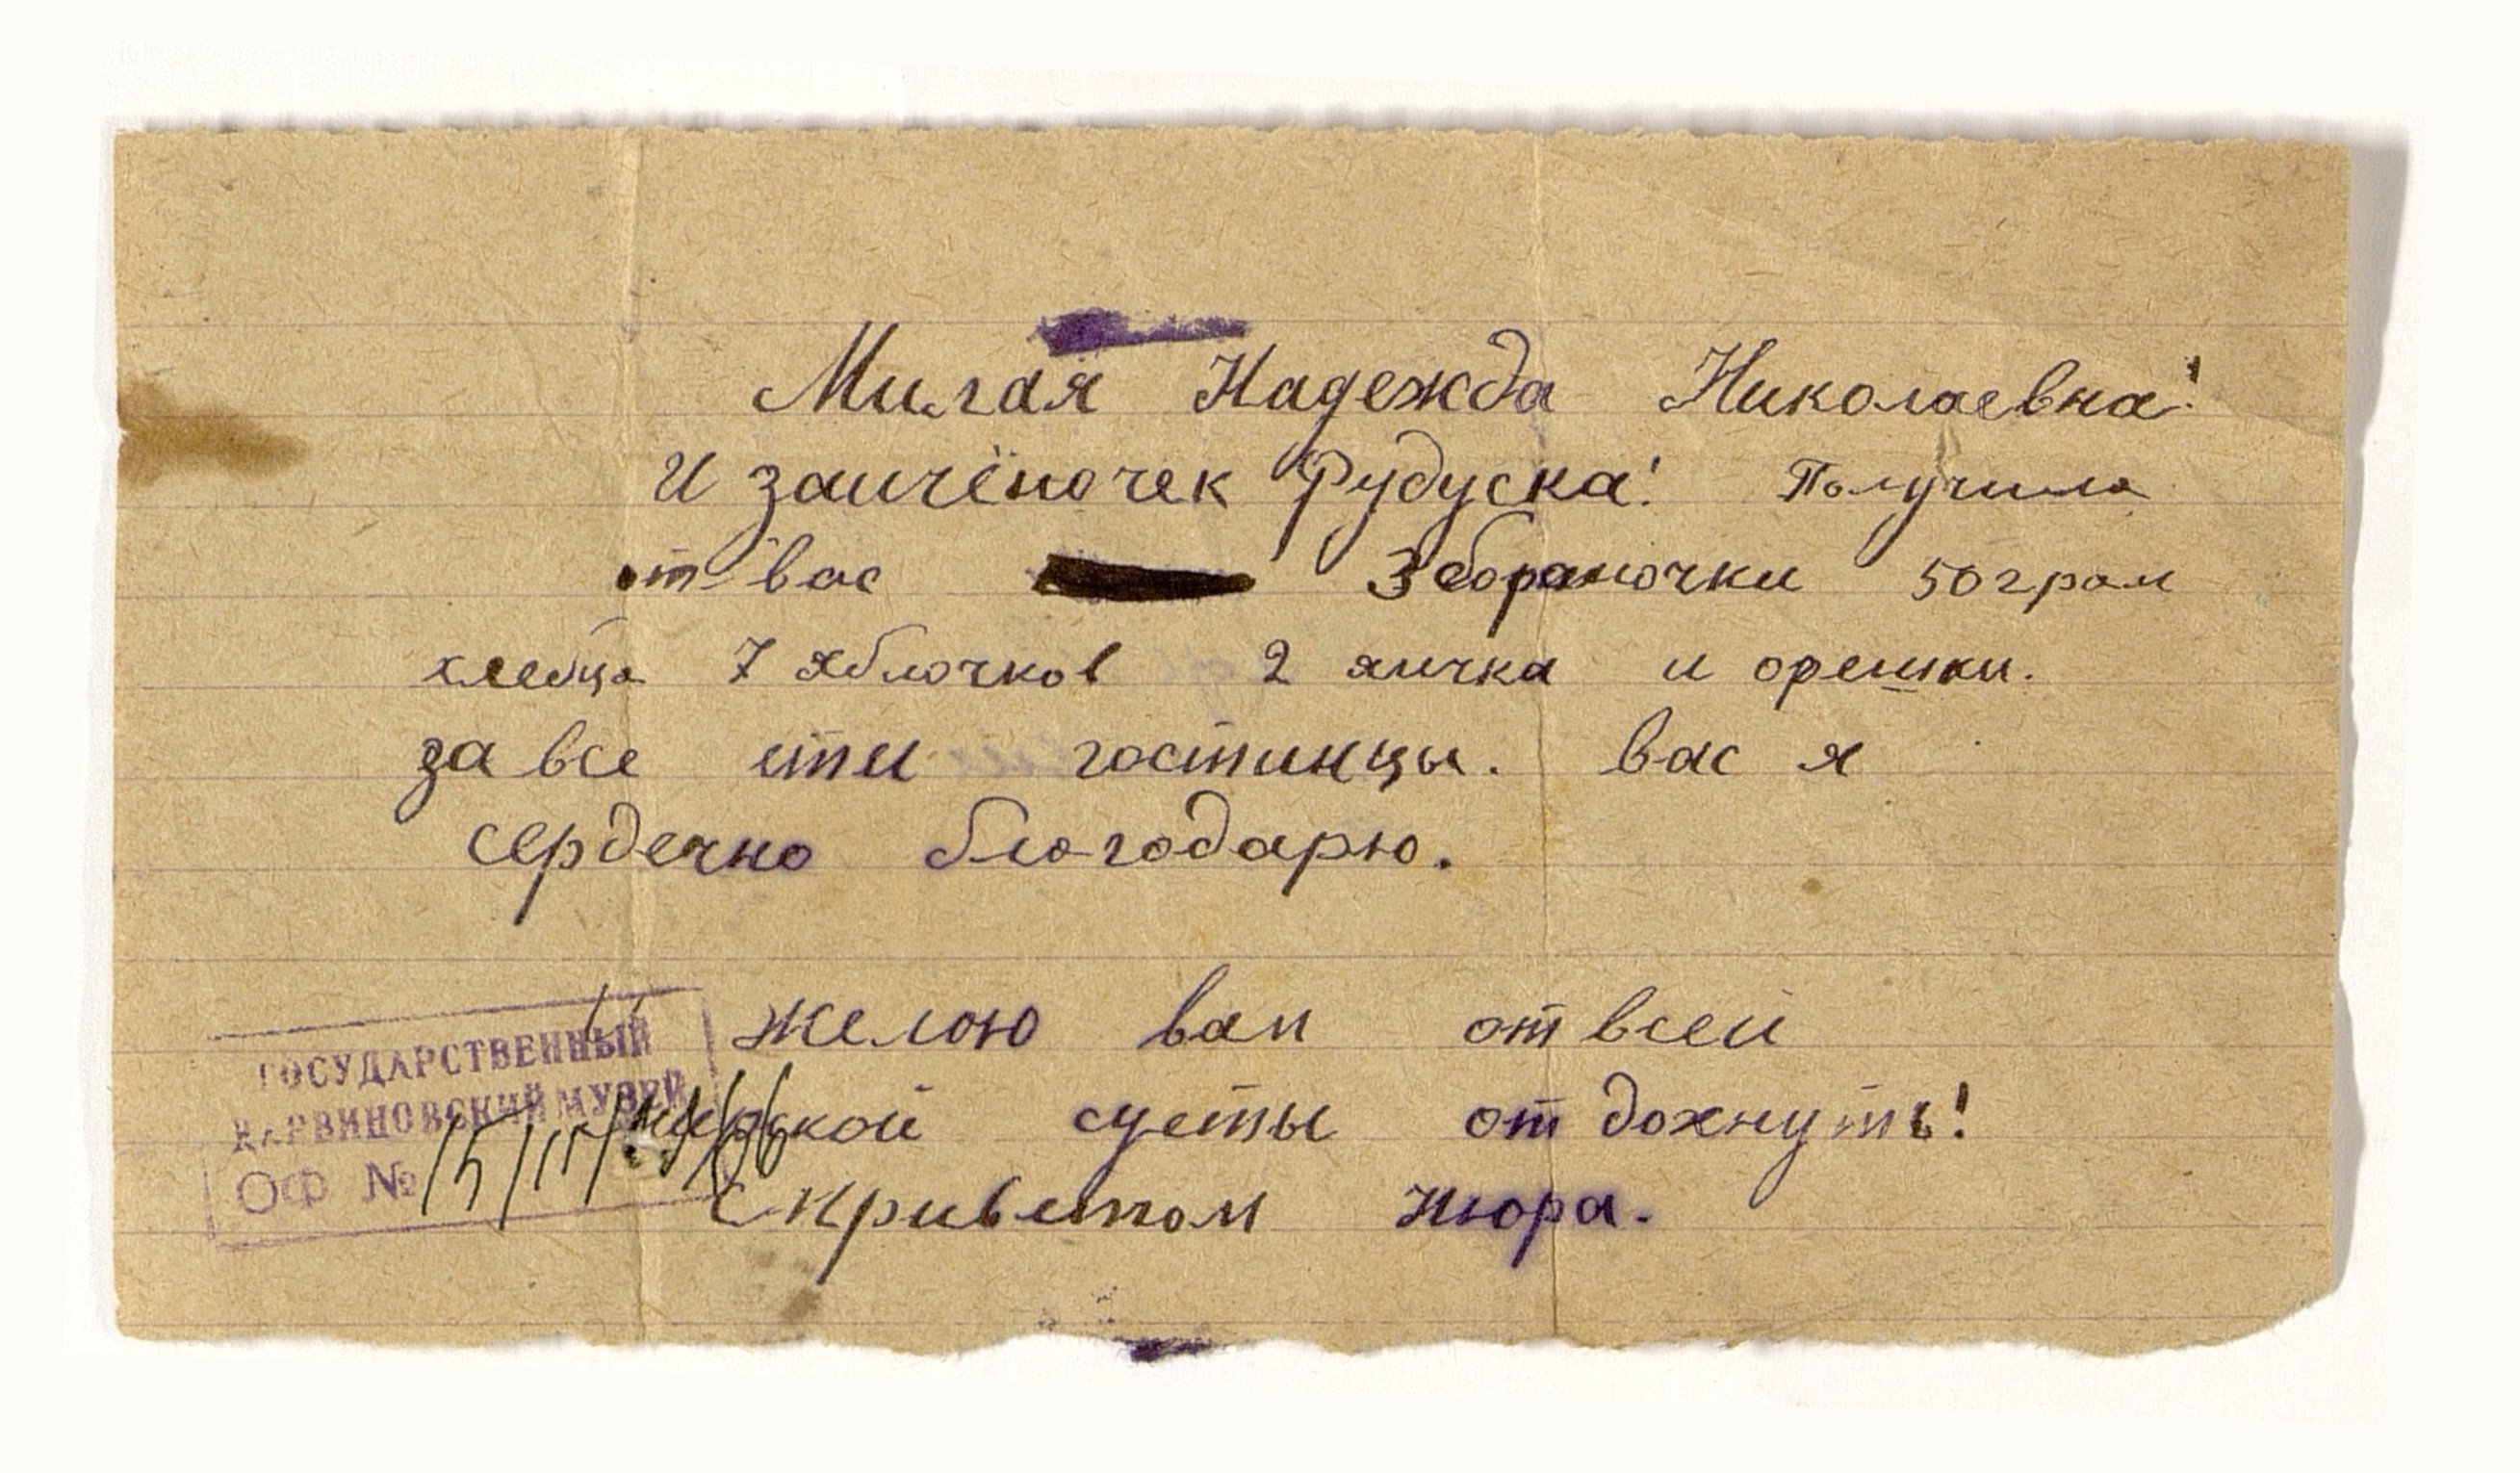 Милая Надежда Николаевна!
и заичёночек Рудуска! Получила
от вас 3 бораночки 50 грам
хлебца 7 яблочков 2 яичка и орешки.
за все ети гостинцы. вас я
сердечно благодарю.
желою вам от всей
мирской суеты от дохнуть!
С приветом Нюра.
ГОСУДАРСТВЕННЫЙ
ДАРВИНОВСКИЙ МУЗЕЙ
ОФ №